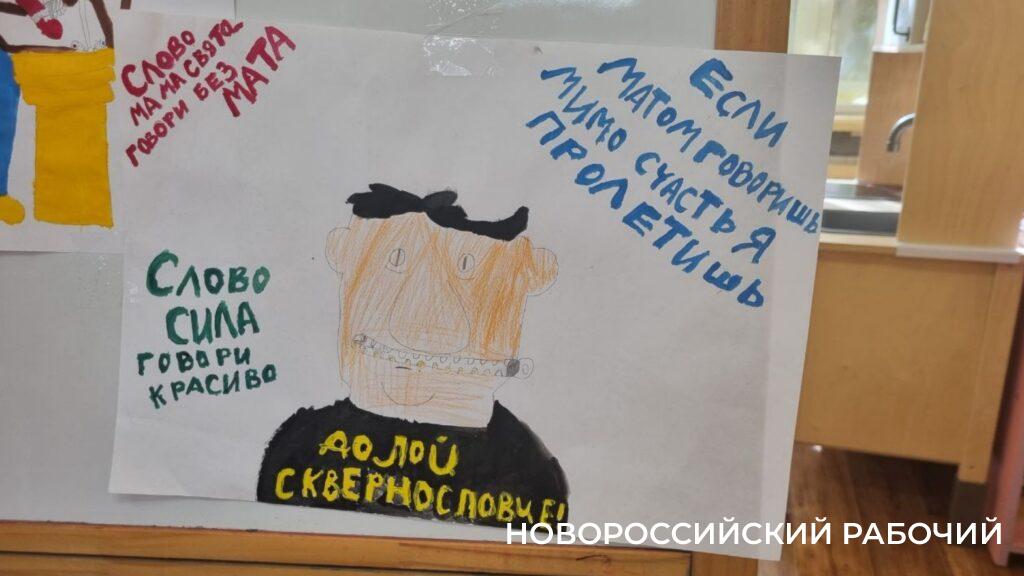 Слово
мама свята
говори без
мата
Если
матом говоришь
мимо счастья
пролетишь
Слово
сила
говори
красиво
долой
сквернословие!
НОВОРОССИЙСКИЙ РАБОЧИЙ